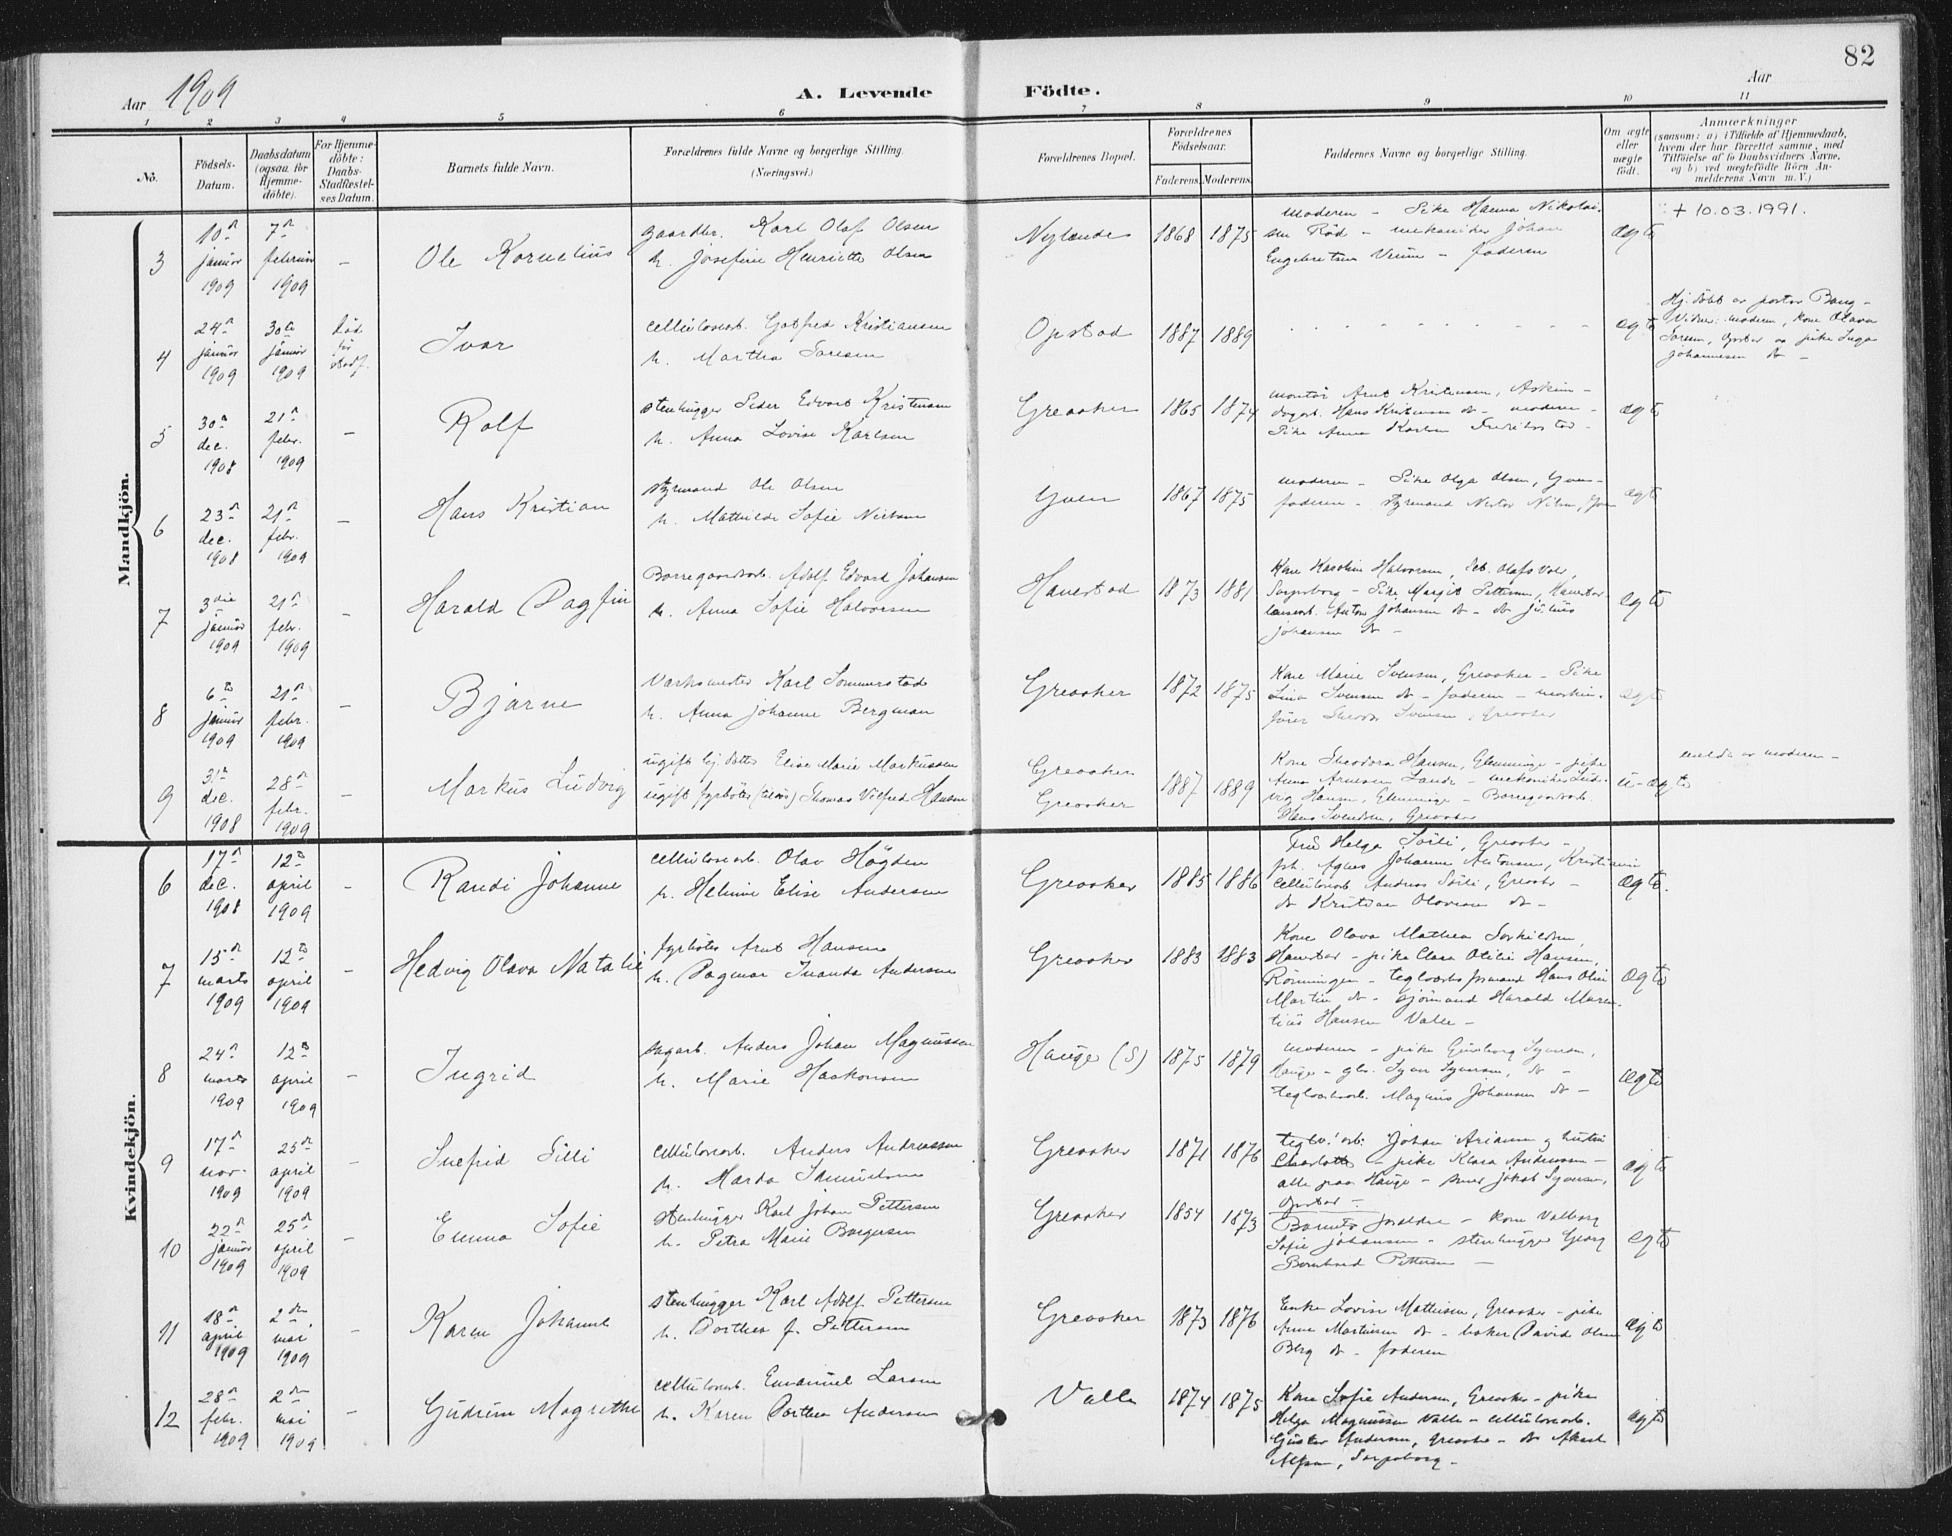 82
Aar 1909
A. Levende Födte.
Aar
1 2 3 4 5 6 7 8 9 10 11
No.
Födsels-
Datum.
Daabsdatum
(ogsaa for
Hjemme-
döbte).
For Hjemme-
döbte:
Daabs-
Stadfæstel-
ses Datum.
Barnets fulde Navn.
Forældrenes fulde Navne og borgerlige Stilling.
(Næringsvei.)
Forældrenes Bopæl.
Forældrenes
Födselsaar.
Faderens. Moderens.
Faddernes Navne og borgerlige Stilling.
Om ægte
eller
uægte
födt.
Anmærkninger
(saasom: a) i Tilfælde af Hjemmedaab,
hvem der har forrettet samme, med
Tilföielse af to Daabsvidners Navne,
og b) ved uægtefödte Börn An-
melderens Navn m. V.)
Mandkjön.
3
10de januar 1909
7de februar 1909
-
Ole Kornelius
gaardbr. Karl Olaf Olsen
h. Josefine Henriette Olsen
Nylende
1868 1875
moderen - Pike Hanna Nikolai-
sen Rød - mekaniker Johan
Engebretsen Veum - faderen
ægte
+ 10.03.1991.
4
24de januar 1909
30te januar 1909
død
før
stadf.
Ivar
cellulosearb. Gotfred Kristiansen
h. Martha Soresen
Opstad
1887 1889
ægte
Hj.döbt av pastor Bang -
Vidner: moderen, kone Olava
Soresen, Opstad og pike Inga
Johannesen do -
5
30te dec. 1908
21de febr. 1909
-
Rolf
stenhugger Peder Edvard Kristensen
h. Anna Lovise Karlsen
Greaaker
1865 1874
montör Arnt Kristensen, Askim -
dagarb. Hans Kristensen do - moderen -
Pike Anna Karlsen Fredriksstad -
ægte
6
23de dec. 1908
21de febr. 1909
-
Hans Kristian
styrmand Ole Olsen
h. Mathilde Sofie Nielsen
Yven
1867 1875
moderen - Pike Olga Olsen, Yven -
faderen - styrmand Nestor Nilsen, Yven
ægte
7
3die januar 1909
21de febr. 1909
-
Harald Dagfin
Borregaardsarb. Adolf Edvard Johansen
h. Anna Sofie Halvorsen
Hanestad
1873 1881
Kone Karoline Halvorsen, St. Olafs Vold,
Sarpsborg - Pike Margit Pettersen, Hanestad
Anton Johansen do - do Julius
Johansen do -
ægte
8
6te januar 1909
21de febr. 1909
-
Bjarne
Værksmester Karl Sommerstad
h. Anna Johanne Bergman
Greaaker
1872 1875
Kone Marie Svensen, Greaaker - Pike
Lina Svensen do - faderen - maskin-
fører Theodor Svensen, Greaaker
ægte
9
31te dec. 1908
28de febr. 1909
-
Markus Ludvig
ugift Elise Marie Markussen
ugift fyrböter Thomas Vilfred Hansen
Greaaker
Greaaker
1887 1889
Kone Theodora Hansen, Glemminge - pike
Anna Arnesen Lande - mekaniker Lud-
vig Hansen, Glemminge - Borregaardsarb.
Hans Svendsen, Greaaker
u-ægte
meldt av moderen -
Kvindekjön.
6
17de dec. 1908
12te april 1909
-
Randi Johanne
cellulosearb. Olav Högden
h. Helmine Elise Andersen
Greaaker
1885 1886
Fru Helga Sørli, Greaaker -
frk. Agnes Johanne Antonsen, Kristiania
cellulosearb. Andreas Sørli, Greaaker -
do Kristian Olavesen do -
ægte.
7
15de marts 1909
12te april 1909
-
Hedvig Olava Natalie
fyrböter Arnt Hansen
h. Dagmar Inanda Andersen
Greaaker
1883 1883
Kone Olava Mathea Torkildsen,
Hanestad - pike Clara Otilie Hansen,
Rönningen - teglverksformand Hans Olin
Martin do - sjömand Harald Mauri-
tius Hansen Valle -
ægte
8
24de marts 1909
12te april 1909
-
Ingrid
sagarb. Anders Johan Magnussen
h. Marie Haakonsen
Hauge (S)
1875 1879
moderen - pike Gunborg Syversen,
Hauge - gbr. Syver Syversen, do -
teglverksarb. Magnus Johansen do -
ægte
9
17de nov. 1909
25de april 1909
-
Inefrid Silli
cellulosearb. Anders Andreassen
h. Marda Samuelsen
Greaaker
1871 1876
teglv.arb. Johan Arіansen og hustru
Charlotte - pike Klara Andreassen -
alle paa Hauge - snek. Jakob Syversen,
Opstad -
ægte
10
22de januar 1909
25de april 1909
-
Emma Sofie
stenhugger Karl Johan Pettersen
h. Petra Marie Borgersen
Greaaker
1854 1873
Barnets forældre - kone Valborg
Sofie Johansen - stenhugger Georg
Bernhard Pettersen -
ægte
11
18de april 1909
2den mai 1909
-
Karen Johanne
stenhugger Karl Adolf Pettersen
h. Dorthea f. Pettersen
Greaaker
1873 1876
Enke Lovise Mathisen, Greaaker - pike
Anne Martinsen do - baker David Olsen
Berg do - faderen
ægte
12
28de febr. 1909
2den mai 1909
-
Gudrun Magrethe
cellulosearb. Emanuel Larsen
h. Karen Dorthea Andersen
Valle
1874 1875
Kone Sofie Andersen, Greaaker - pike
Helga Magnussen Valle - cellulosearb.
Gustav Andersen, Greaaker - do Aksel
Alfsen, Sarpsborg -
ægte